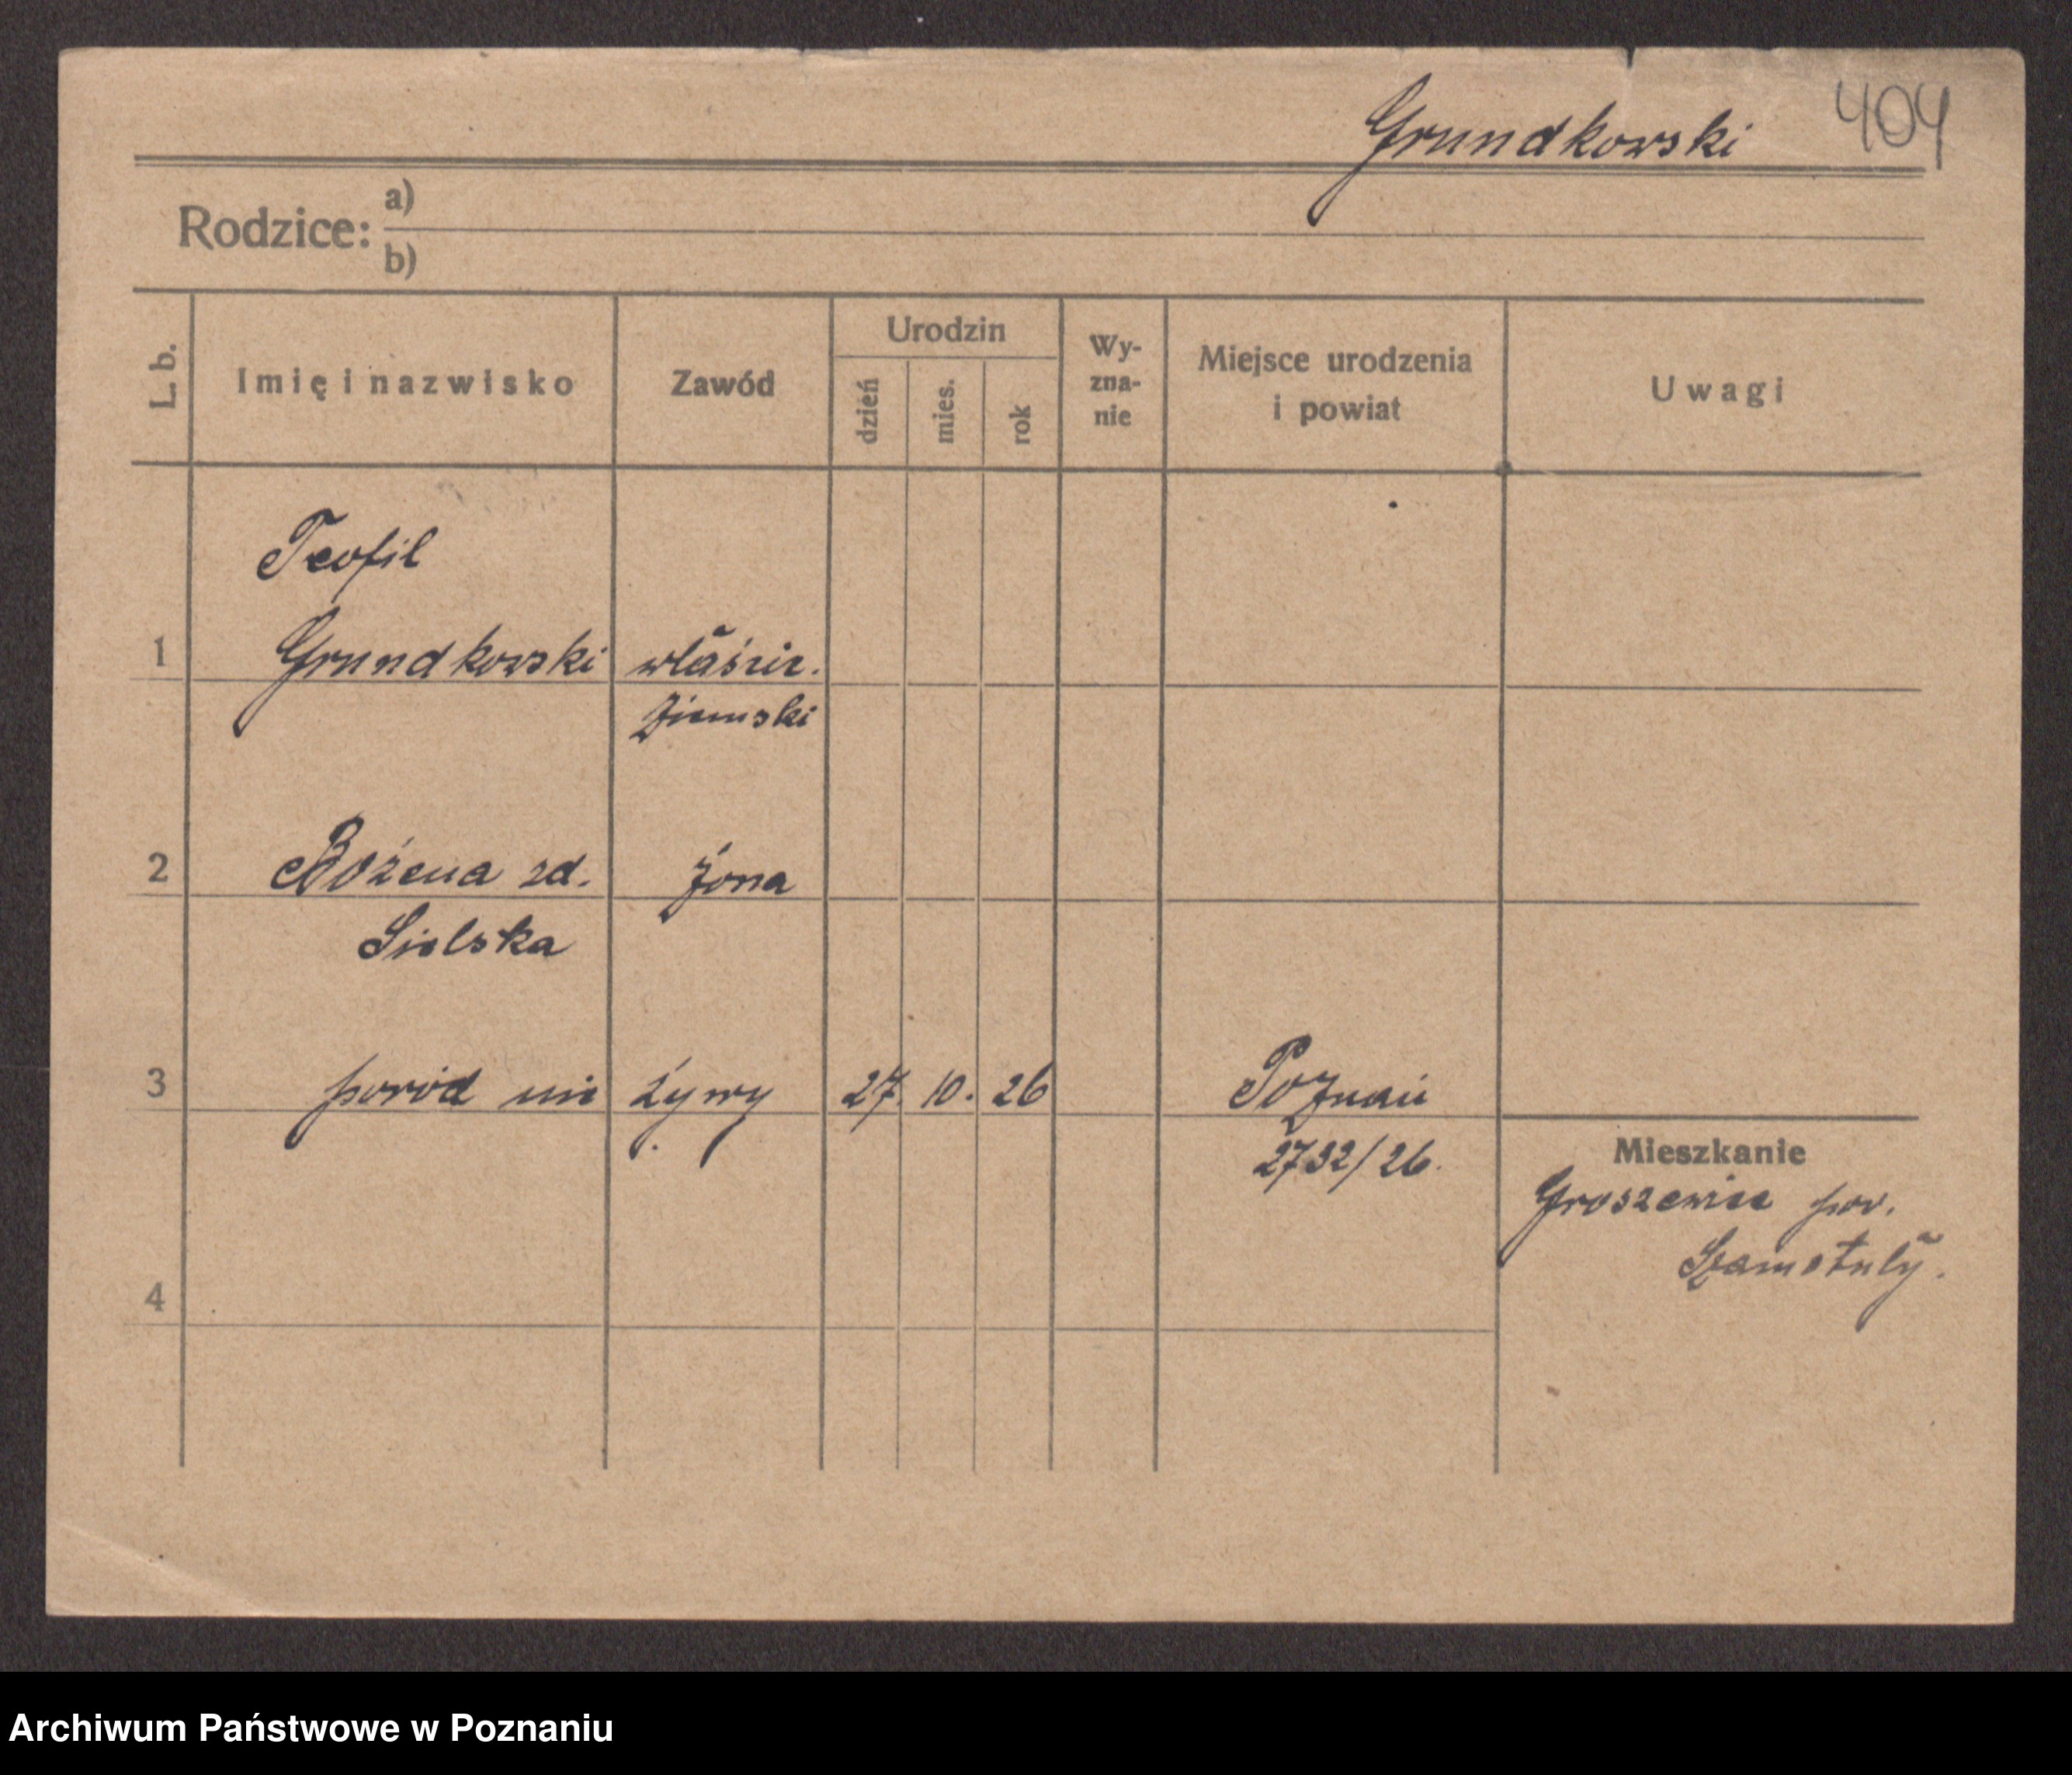 Grundkowski 404
Rodzice: a)
b)
L. b.
Imię i nazwisko
Zawód
Urodzin
dzień
mies.
rok
Wy-
zna-
nie
Miejsce urodzenia
i powiat
Uwagi
Teofil
1 Grundkowski właścic.
Ziemski
2 Bożena zd. żona
Sielska
3 poród nie żywy 27. 10. 26 Poznań
2732/26.
Mieszkanie
Groszewice pow.
Szamotuły.
4
Archiwum Państwowe w Poznaniu